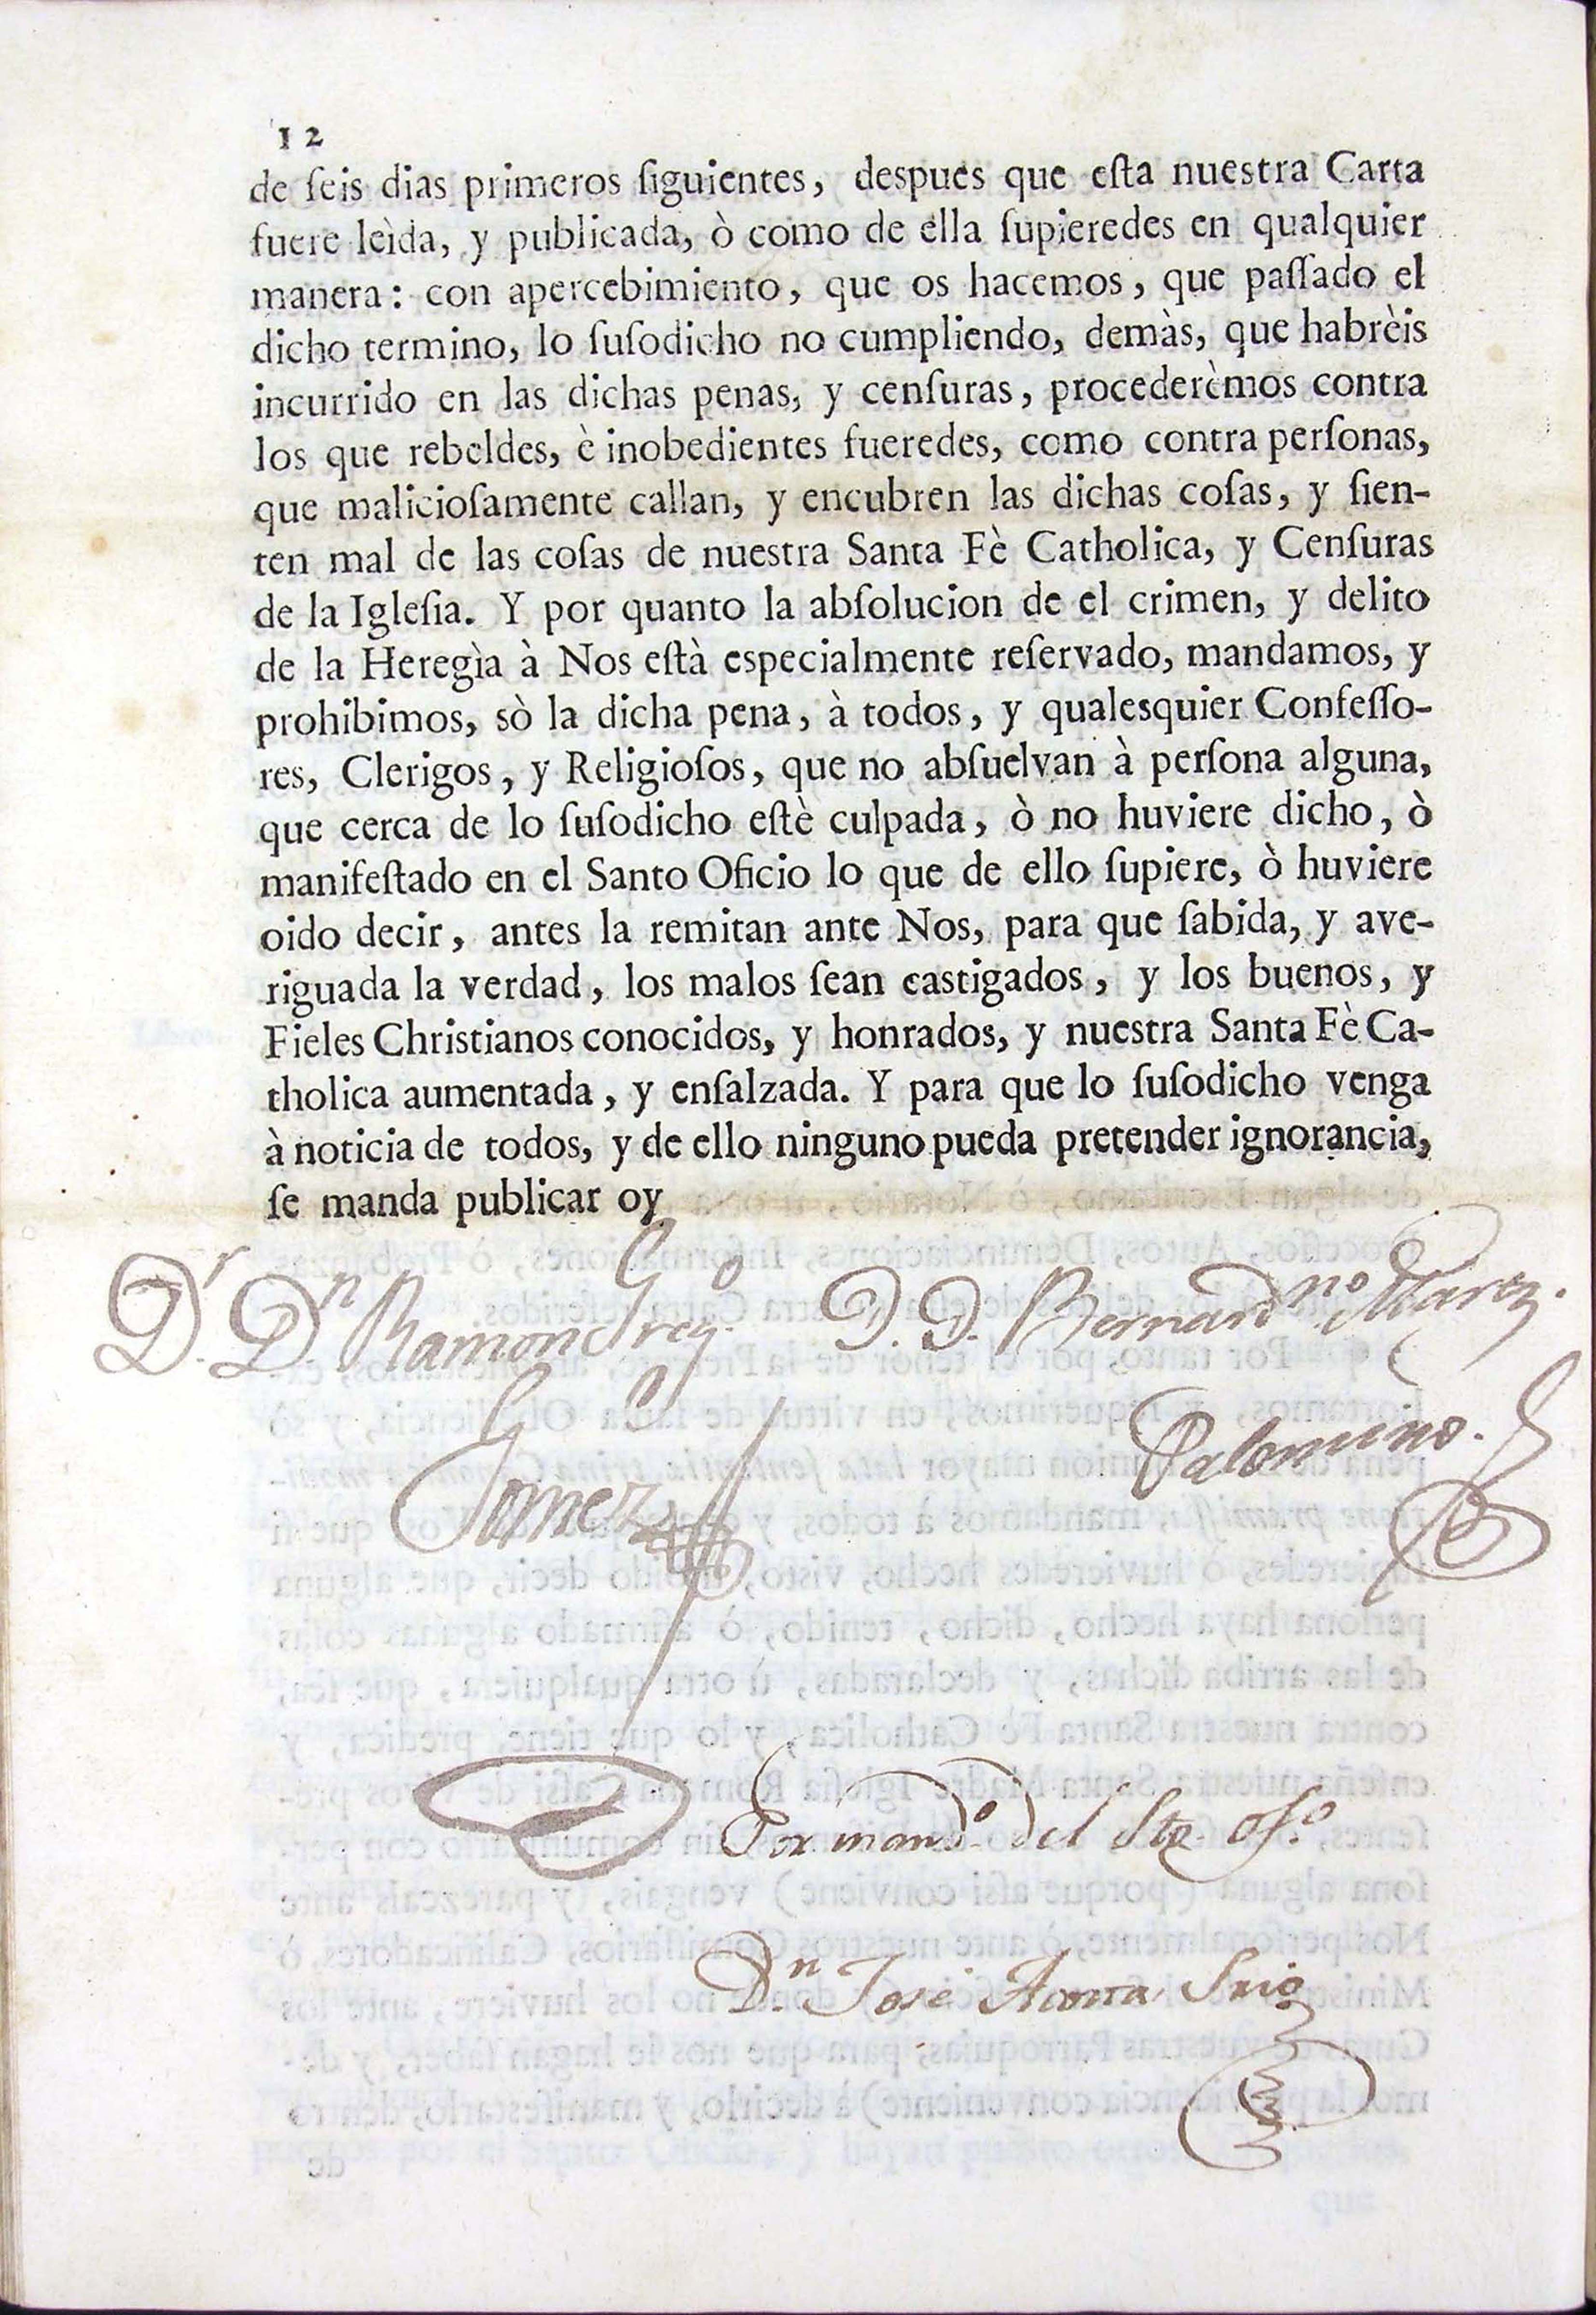 12
de ſeis dias primeros ſiguientes, despues que eſta nuestra Carta
fuere leìda, y publicada, ò como de ella ſupieredes en qualquier
manera: con apercebimiento, que os hacemos, que paſſado el
dicho termino, lo ſuſodicho no cumpliendo, demàs, que habrèis
incurrido en las dichas penas, y cenſuras, procederèmos contra
los que rebeldes, è inobedientes fueredes, como contra perſonas,
que malicioſamente callan, y encubren las dichas coſas, y ſien-
ten mal de las coſas de nuestra Santa Fè Catholica, y Cenſuras
de la Igleſia. Y por quanto la abſolucion de el crimen, y delito
de la Heregìa à Nos eſtà especialmente reſervado, mandamos, y
prohibimos, sò la dicha pena, à todos, y qualesquier Confeſſo-
res, Clerigos, y Religioſos, que no abſuelvan à perſona alguna,
que cerca de lo ſuſodicho eſtè culpada, ò no huviere dicho, ò
manifeſtado en el Santo Oficio lo que de ello ſupiere, ò huviere
oido decir, antes la remitan ante Nos, para que ſabida, y ave-
riguada la verdad, los malos ſean castigados, y los buenos, y
Fieles Christianos conocidos, y honrados, y nuestra Santa Fè Ca-
tholica aumentada, y enſalzada. Y para que lo ſuſodicho venga
à noticia de todos, y de ello ninguno pueda pretender ignorancia,
ſe manda publicar oy
Dr. Dn Ramon Gregº. D. D. Bernardno. 
Gomez Palomino.
Por mandº. del Stº. Ofº.
Dn. José Acosta Srio